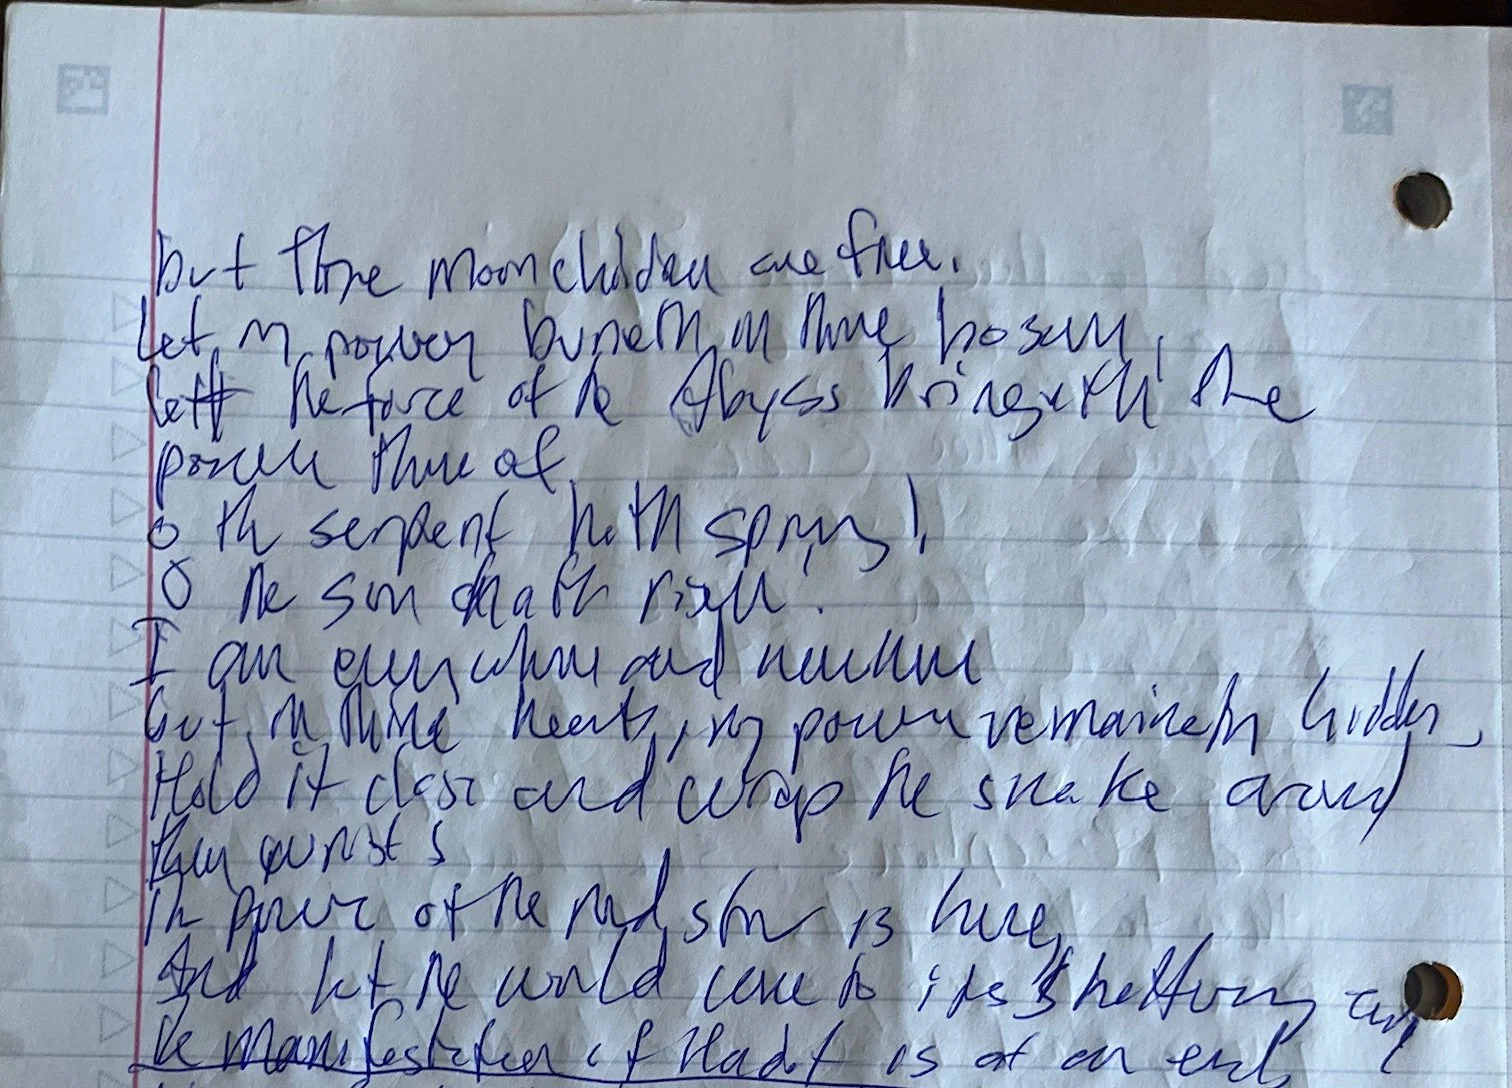 but thine moonchilden are free.
Let my power burneth in thine bosum,
lett the force of the Abyss bringeth the
power thine of
O th serpent hath sprung!
O the sun hath risen!
I am everywhere and nowhere
but in thine heart, my power remaineth hidden,
Hold it close and wrap the snake around
then wrists
The power of the red star is here,
And let the world come to its shattering
the manifestation of Hadit is at an end,